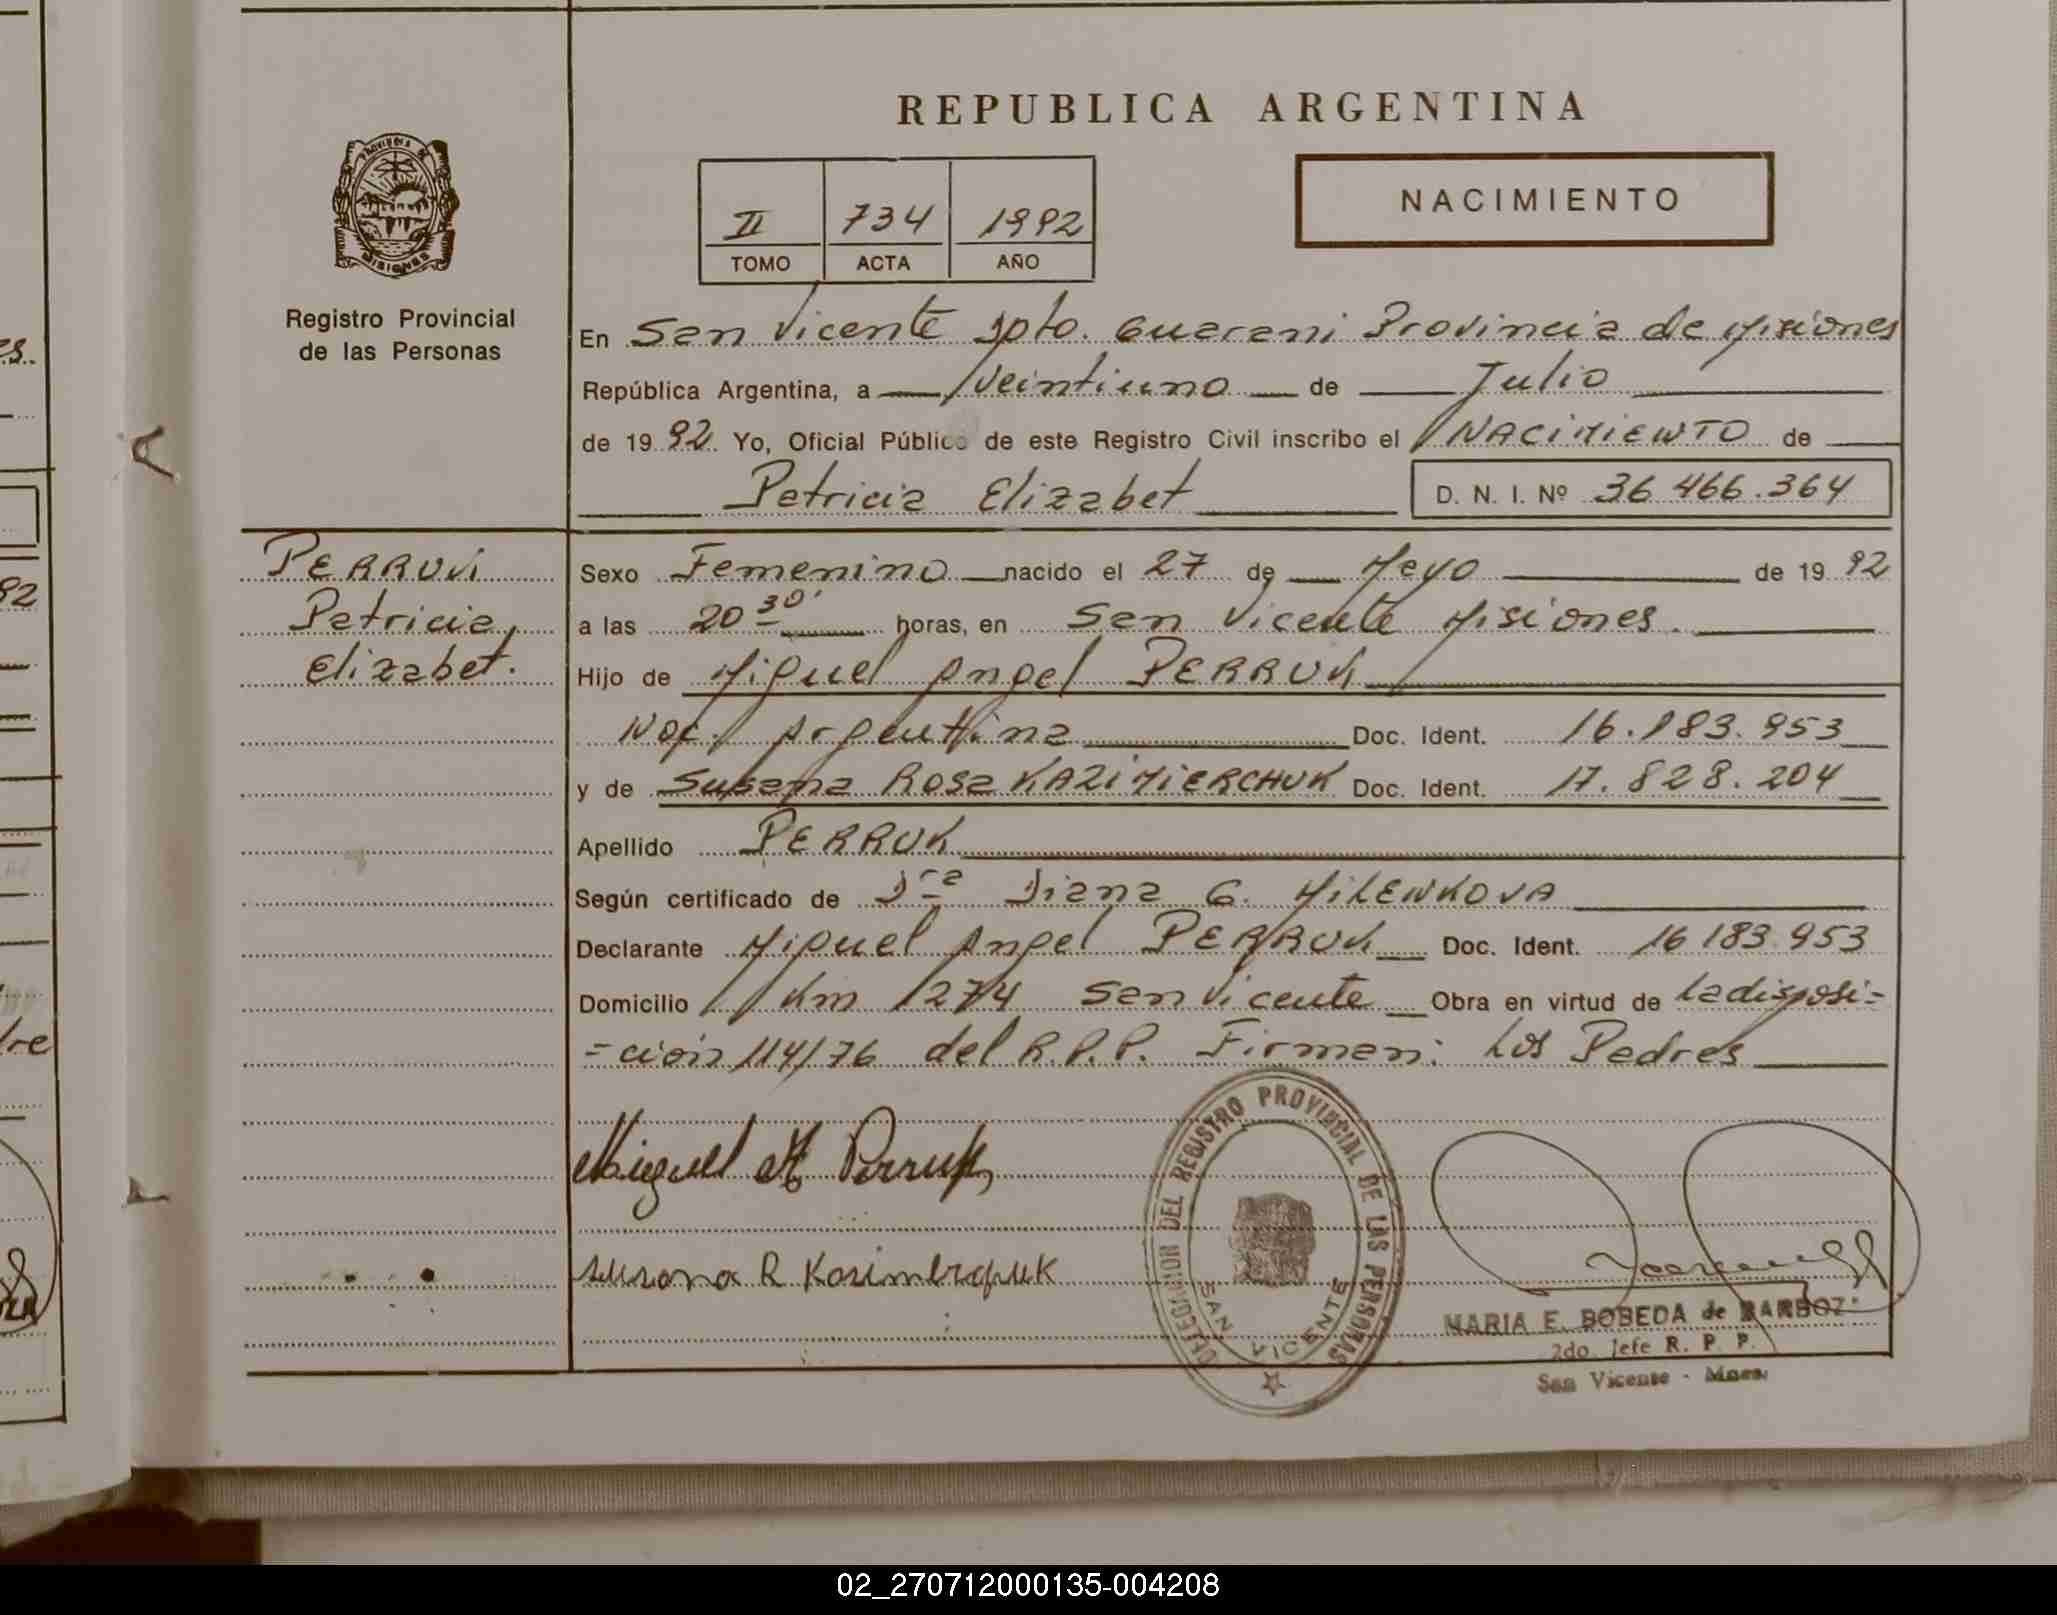 REPUBLICA ARGENTINA
NACIMIENTO
II 734 1992
TOMO ACTA AÑO
PROVINCIA DE
MISIONES
Registro Provincial
de las Personas
En San Vicente Dpto. Guarani Provincia de Misiones
República Argentina, a veintiuno de Julio
de 1992. Yo, Oficial Público de este Registro Civil inscribo el NACIMIENTO de
Patricia Elizabet D. N. I. Nº 36.466.364
PERRUK
Patricia
Elizabet.
Sexo Femenino nacido el 27 de Mayo de 1992
a las 20 30' horas, en San Vicente Misiones.
Hijo de Miguel Angel PERRUK
Nac. Argentina Doc. Ident. 16.183.953
y de Susana Rosa KAZIMIERCHUK Doc. Ident. 17.828.204
Apellido PERRUK
Según certificado de Dra Diana G. MILENKOVA
Declarante Miguel Angel PERRUK Doc. Ident. 16 183.953
Domicilio Km 1274 San Vicente Obra en virtud de la disposi=
=ción 114/76 del R.P.P. Firman: Los Padres
Miguel A Perruk
Susana R
DELEGACION DEL REGISTRO PROVINCIAL DE LAS PERSONAS
SAN VICENTE
MARIA E. BOBEDA de BARBOZA
2do. Jefe R. P. P.
San Vicente - Mnes.
02_270712000135-004208